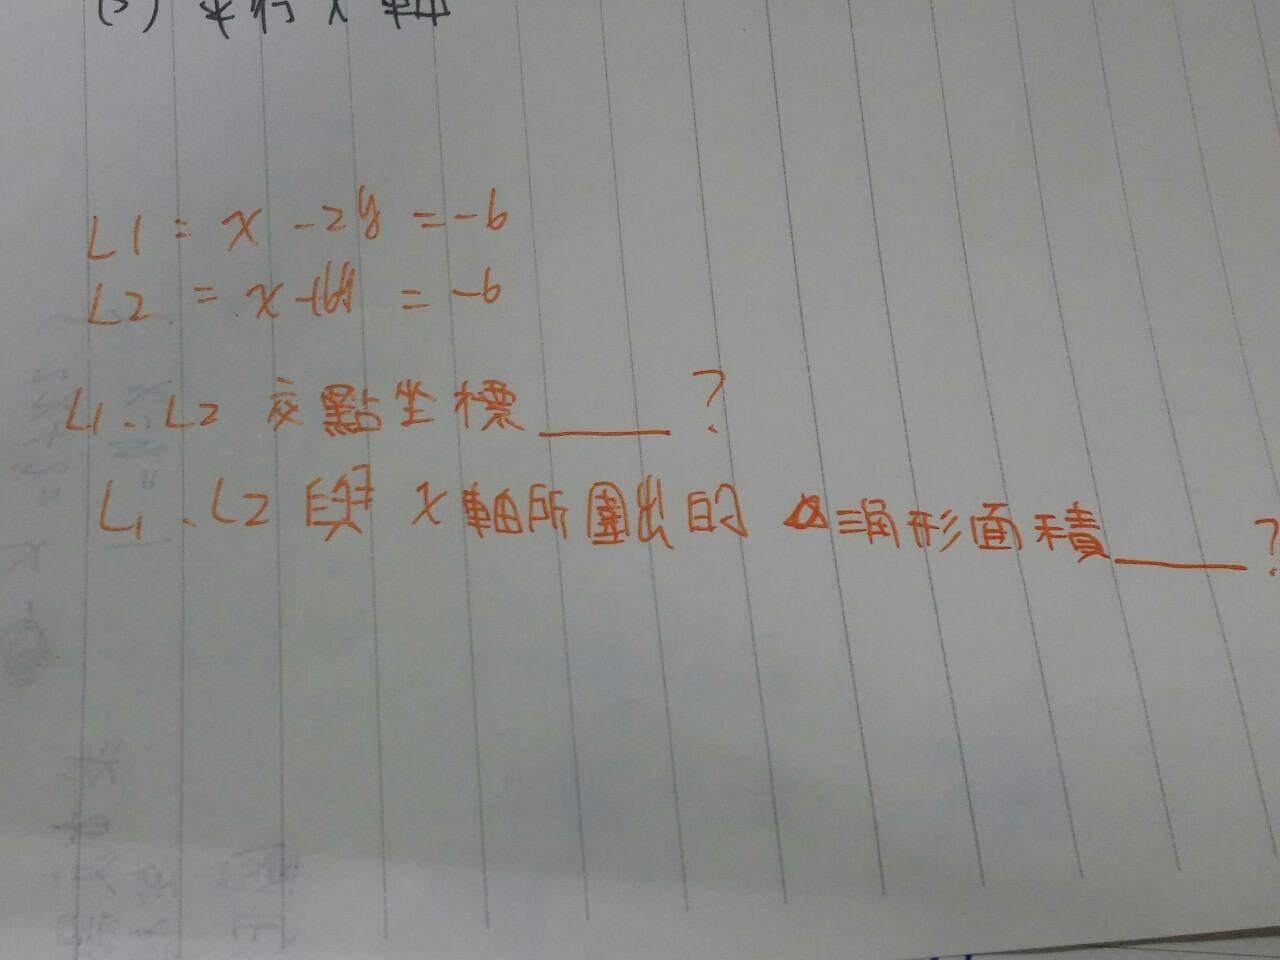 (3) 平行 x 軸
L1 : x - 2y = -6
L2 = x + 6y = -6
L1、L2 交點坐標______?
L1、L2 與 x 軸所圍出的 三角形面積______?